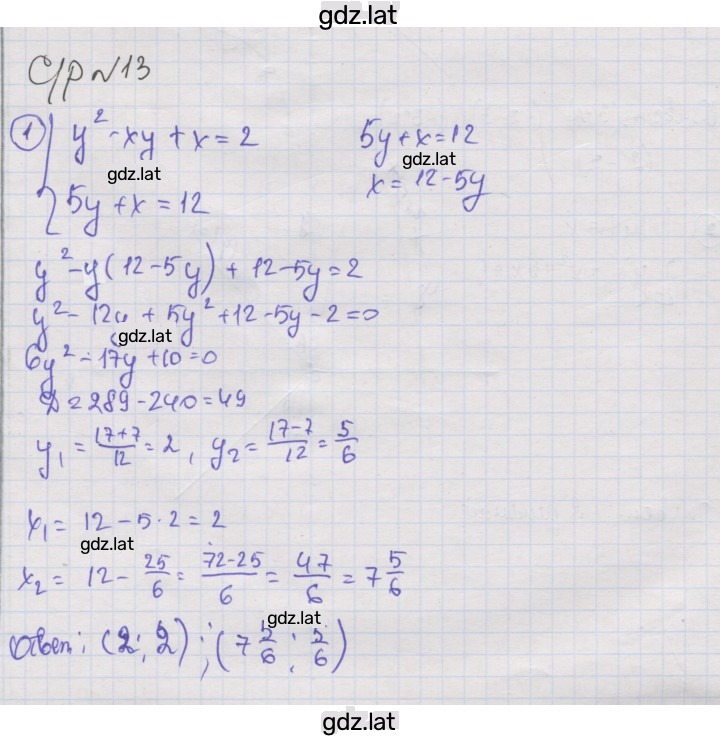 gdz.lat
С/р №13
① { y² - xy + x = 2    5y + x = 12
gdz.lat    gdz.lat
5y + x = 12    x = 12 - 5y
y² - y(12 - 5y) + 12 - 5y = 2
y² - 12y + 5y² + 12 - 5y - 2 = 0
gdz.lat
6y² - 17y + 10 = 0
D = 289 - 240 = 49
y₁ = (17+7)/12 = 2, y₂ = (17-7)/12 = 5/6
x₁ = 12 - 5 · 2 = 2
gdz.lat
x₂ = 12 - 25/6 = (72-25)/6 = 47/6 = 7 5/6
gdz.lat
Ответ: (2; 2); (7 5/6; 5/6)
gdz.lat